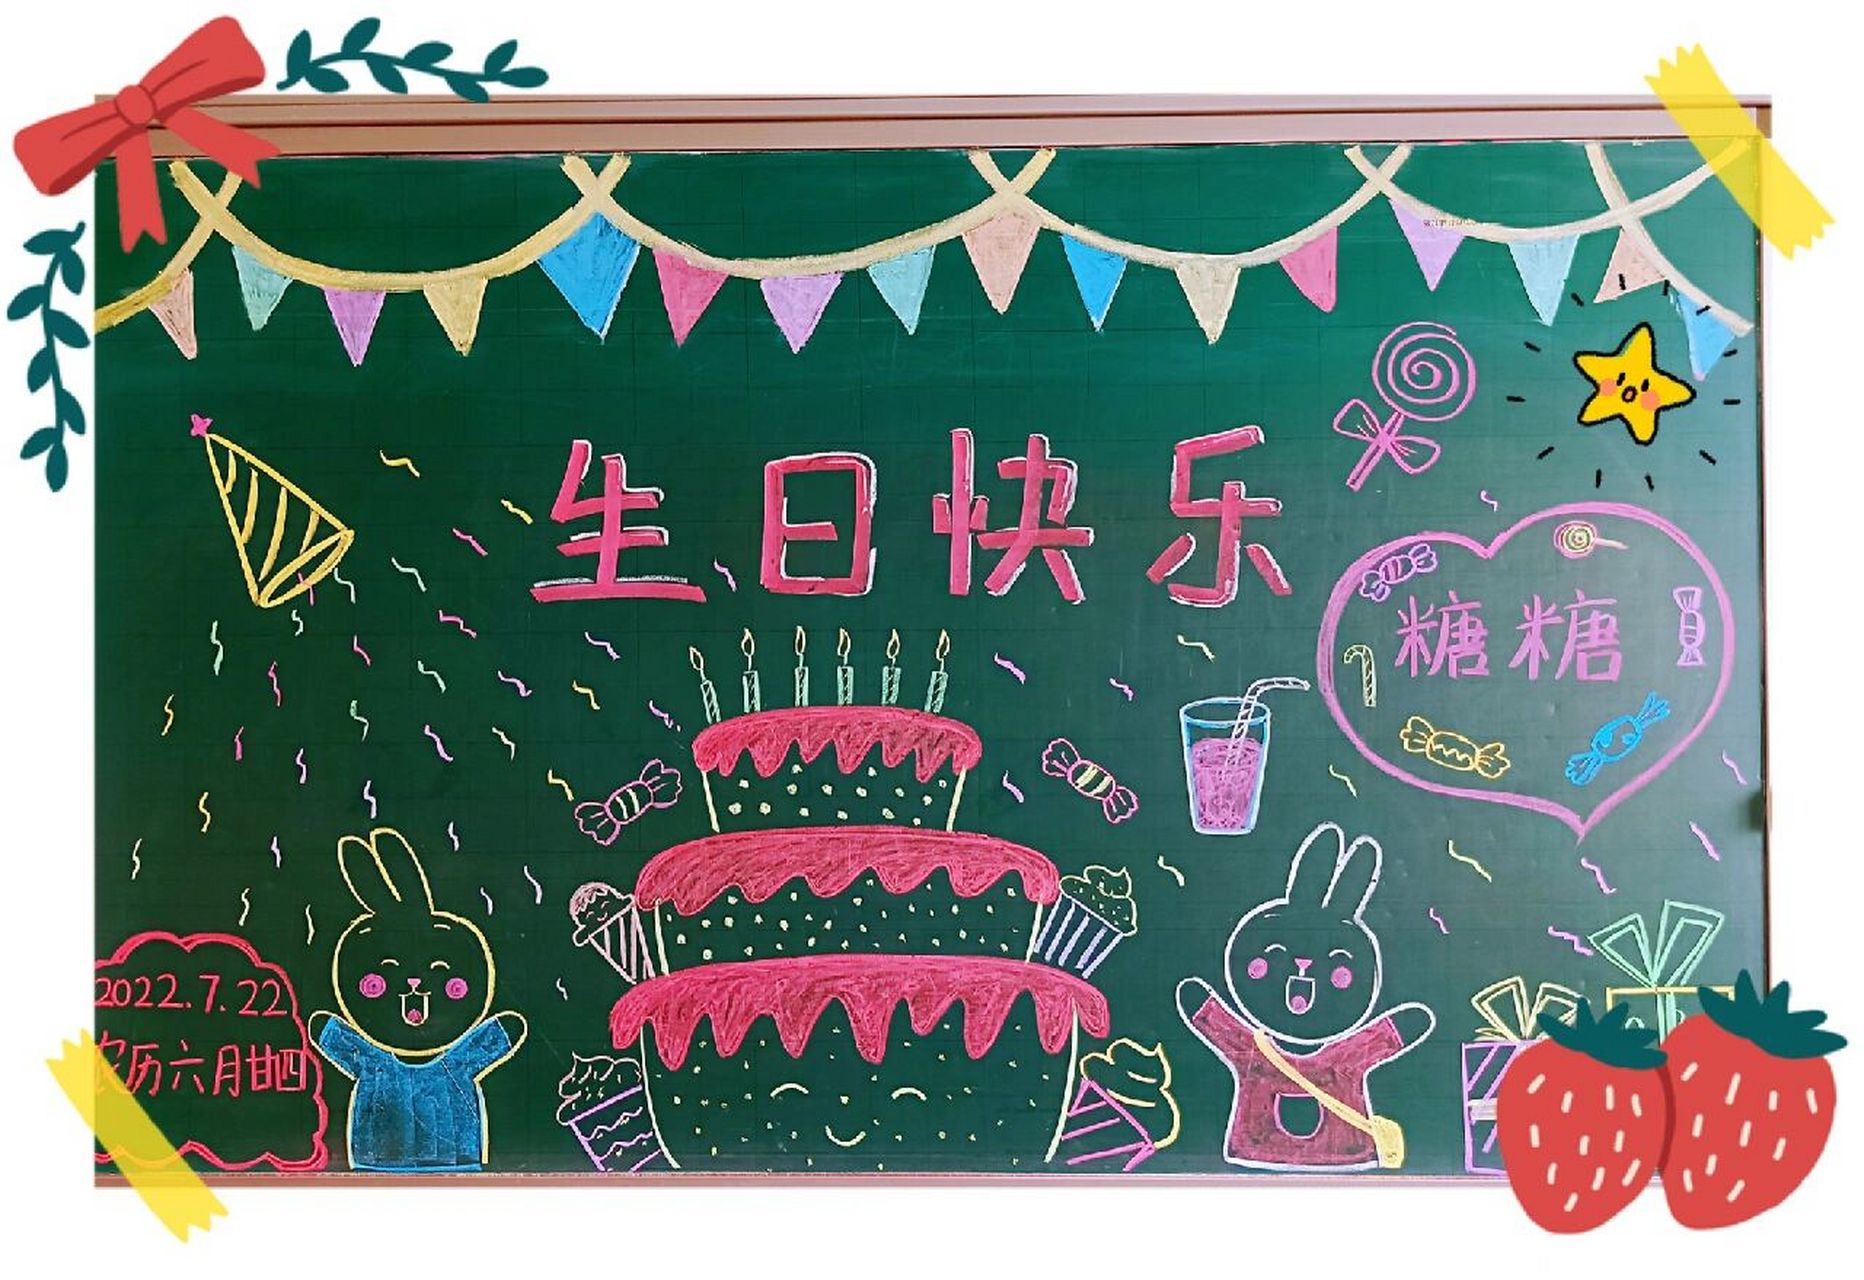 生日快乐
糖糖
2022.7.22
农历六月廿四